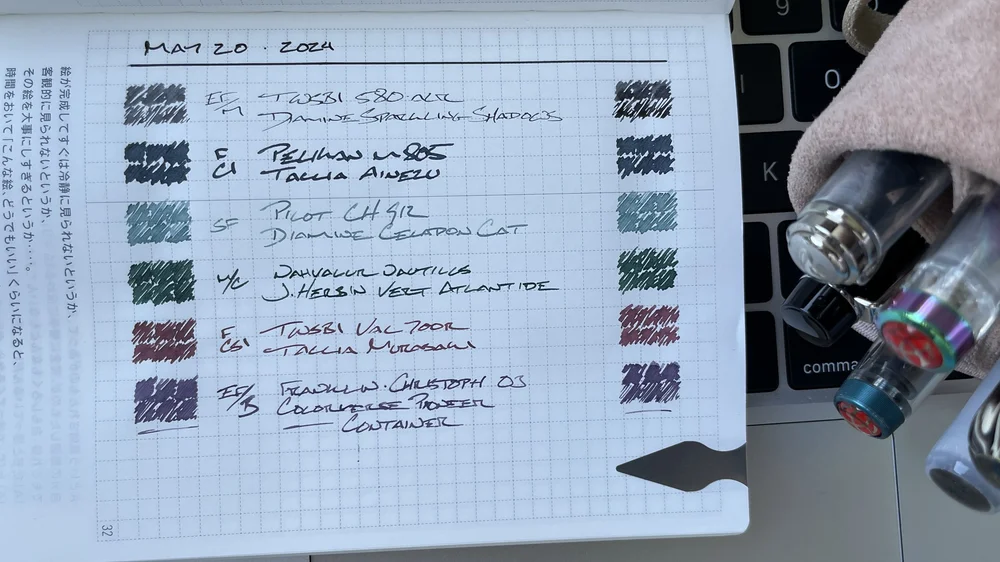 MAY 20 · 2024
EF/M TWSBI 580 ALR
DIAMINE SPARKLING SHADOWS
F PELIKAN M805
CI TALLIA AINEZU
SF PILOT CH 912
DIAMINE CELADON CAT
M/C NAHVALUR NAUTILUS
J. HERBIN VERT ATLANTIDE
F TWSBI VAC 700R
CSI TALLIA MURASAKI
EF/B FRANKLIN-CHRISTOPH 03
COLORVERSE PIONEER
CONTAINER
32
絵が完成してすぐは冷静に見られないというか、
客観的に見られないというか、
その絵を大事にしすぎるというか……。
時間をおいて「こんな絵、どうでもいい」くらいになると、
9
O
K
comma